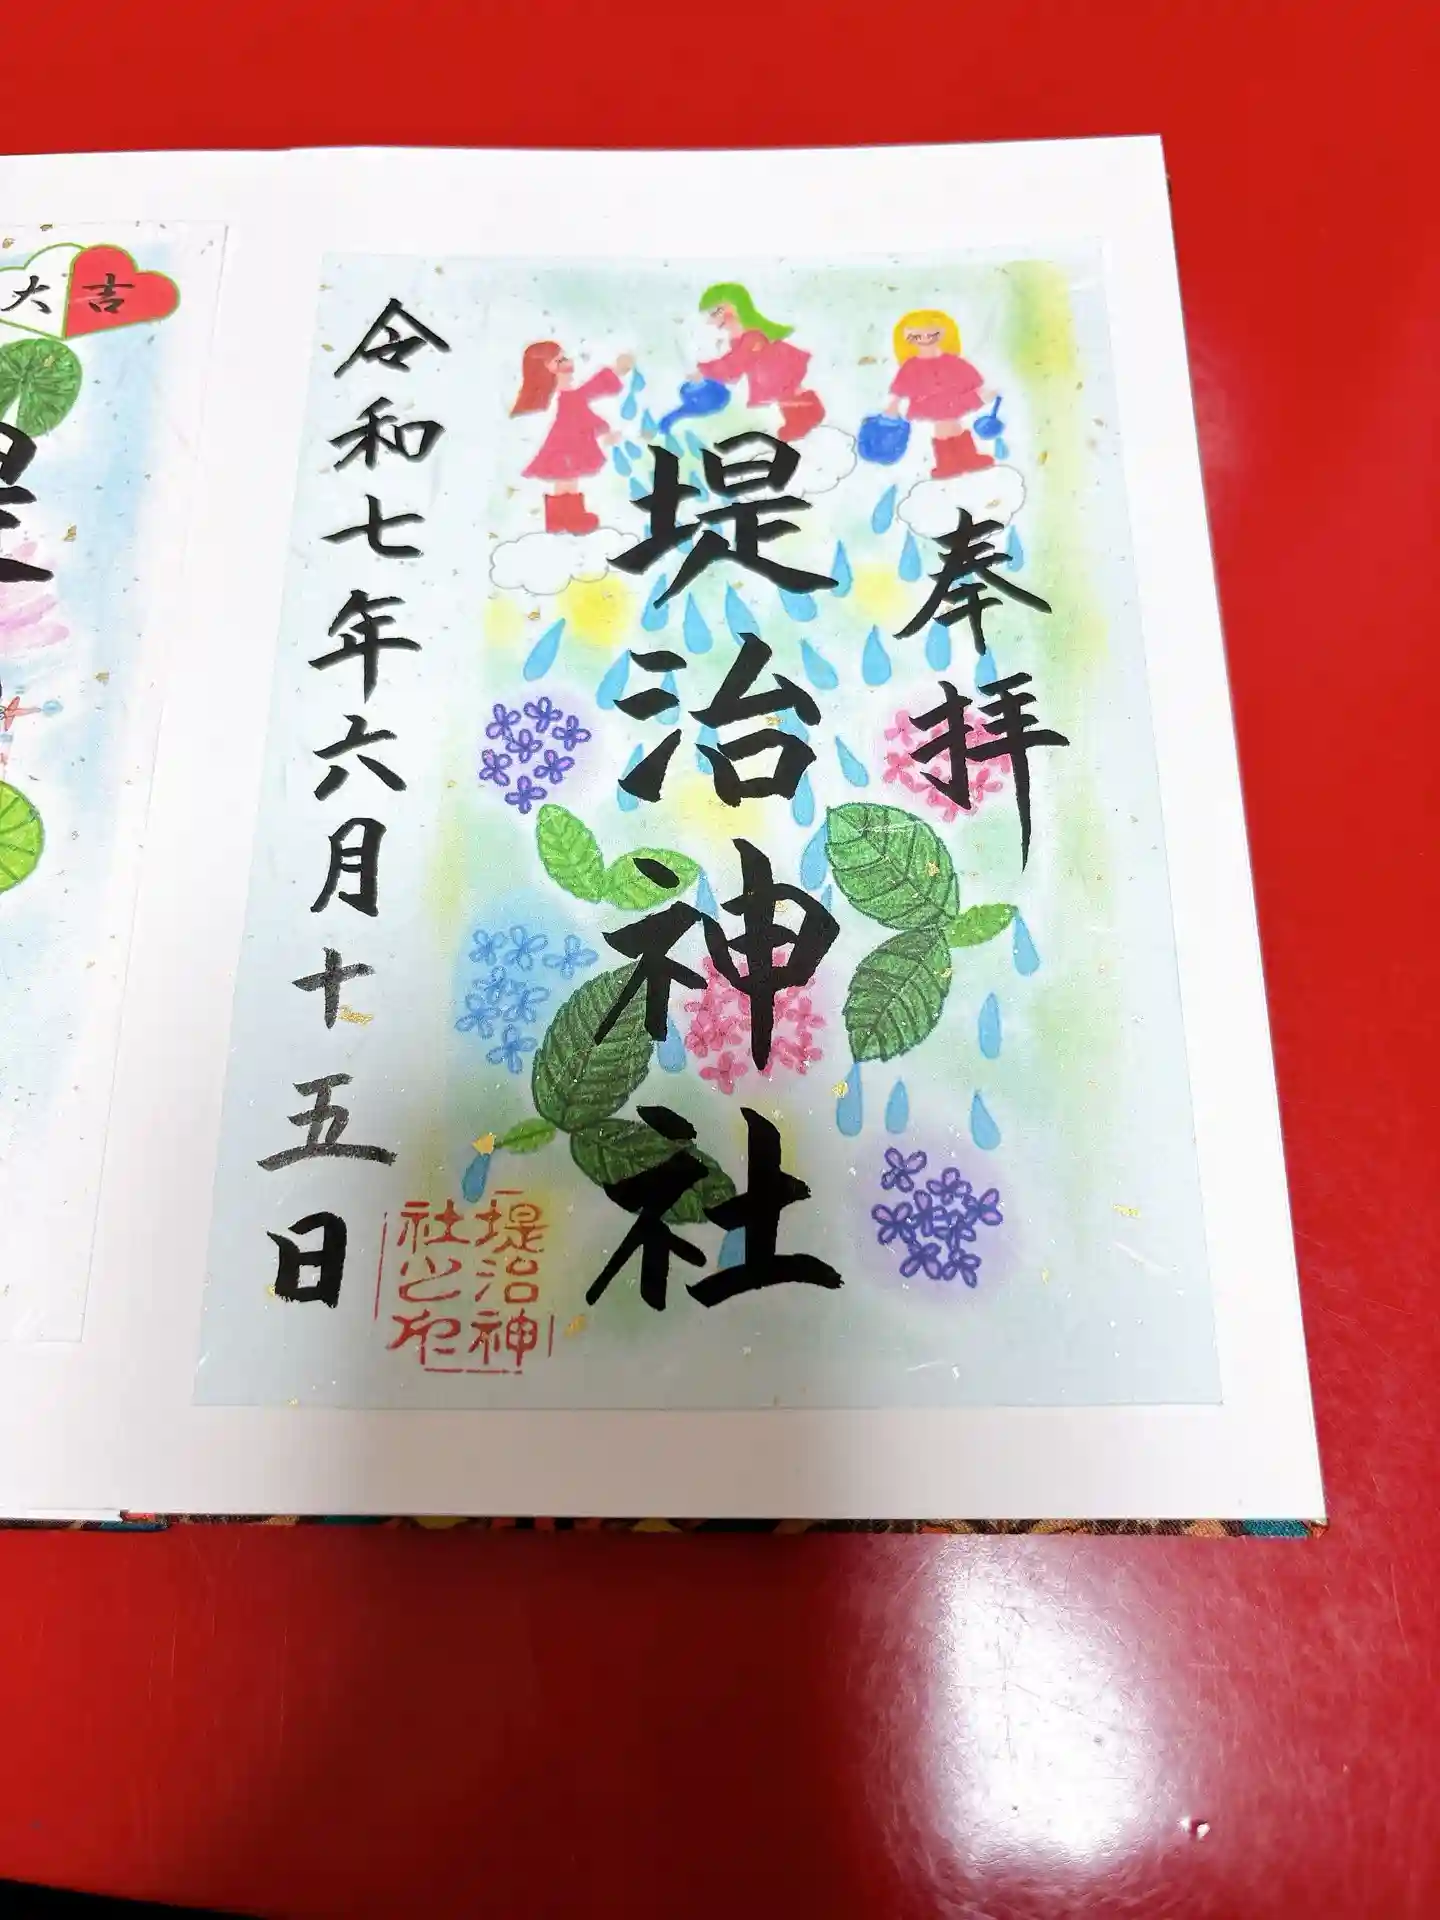 奉拝
堤治神社
堤治神
社之印
令和七年六月十五日
大吉